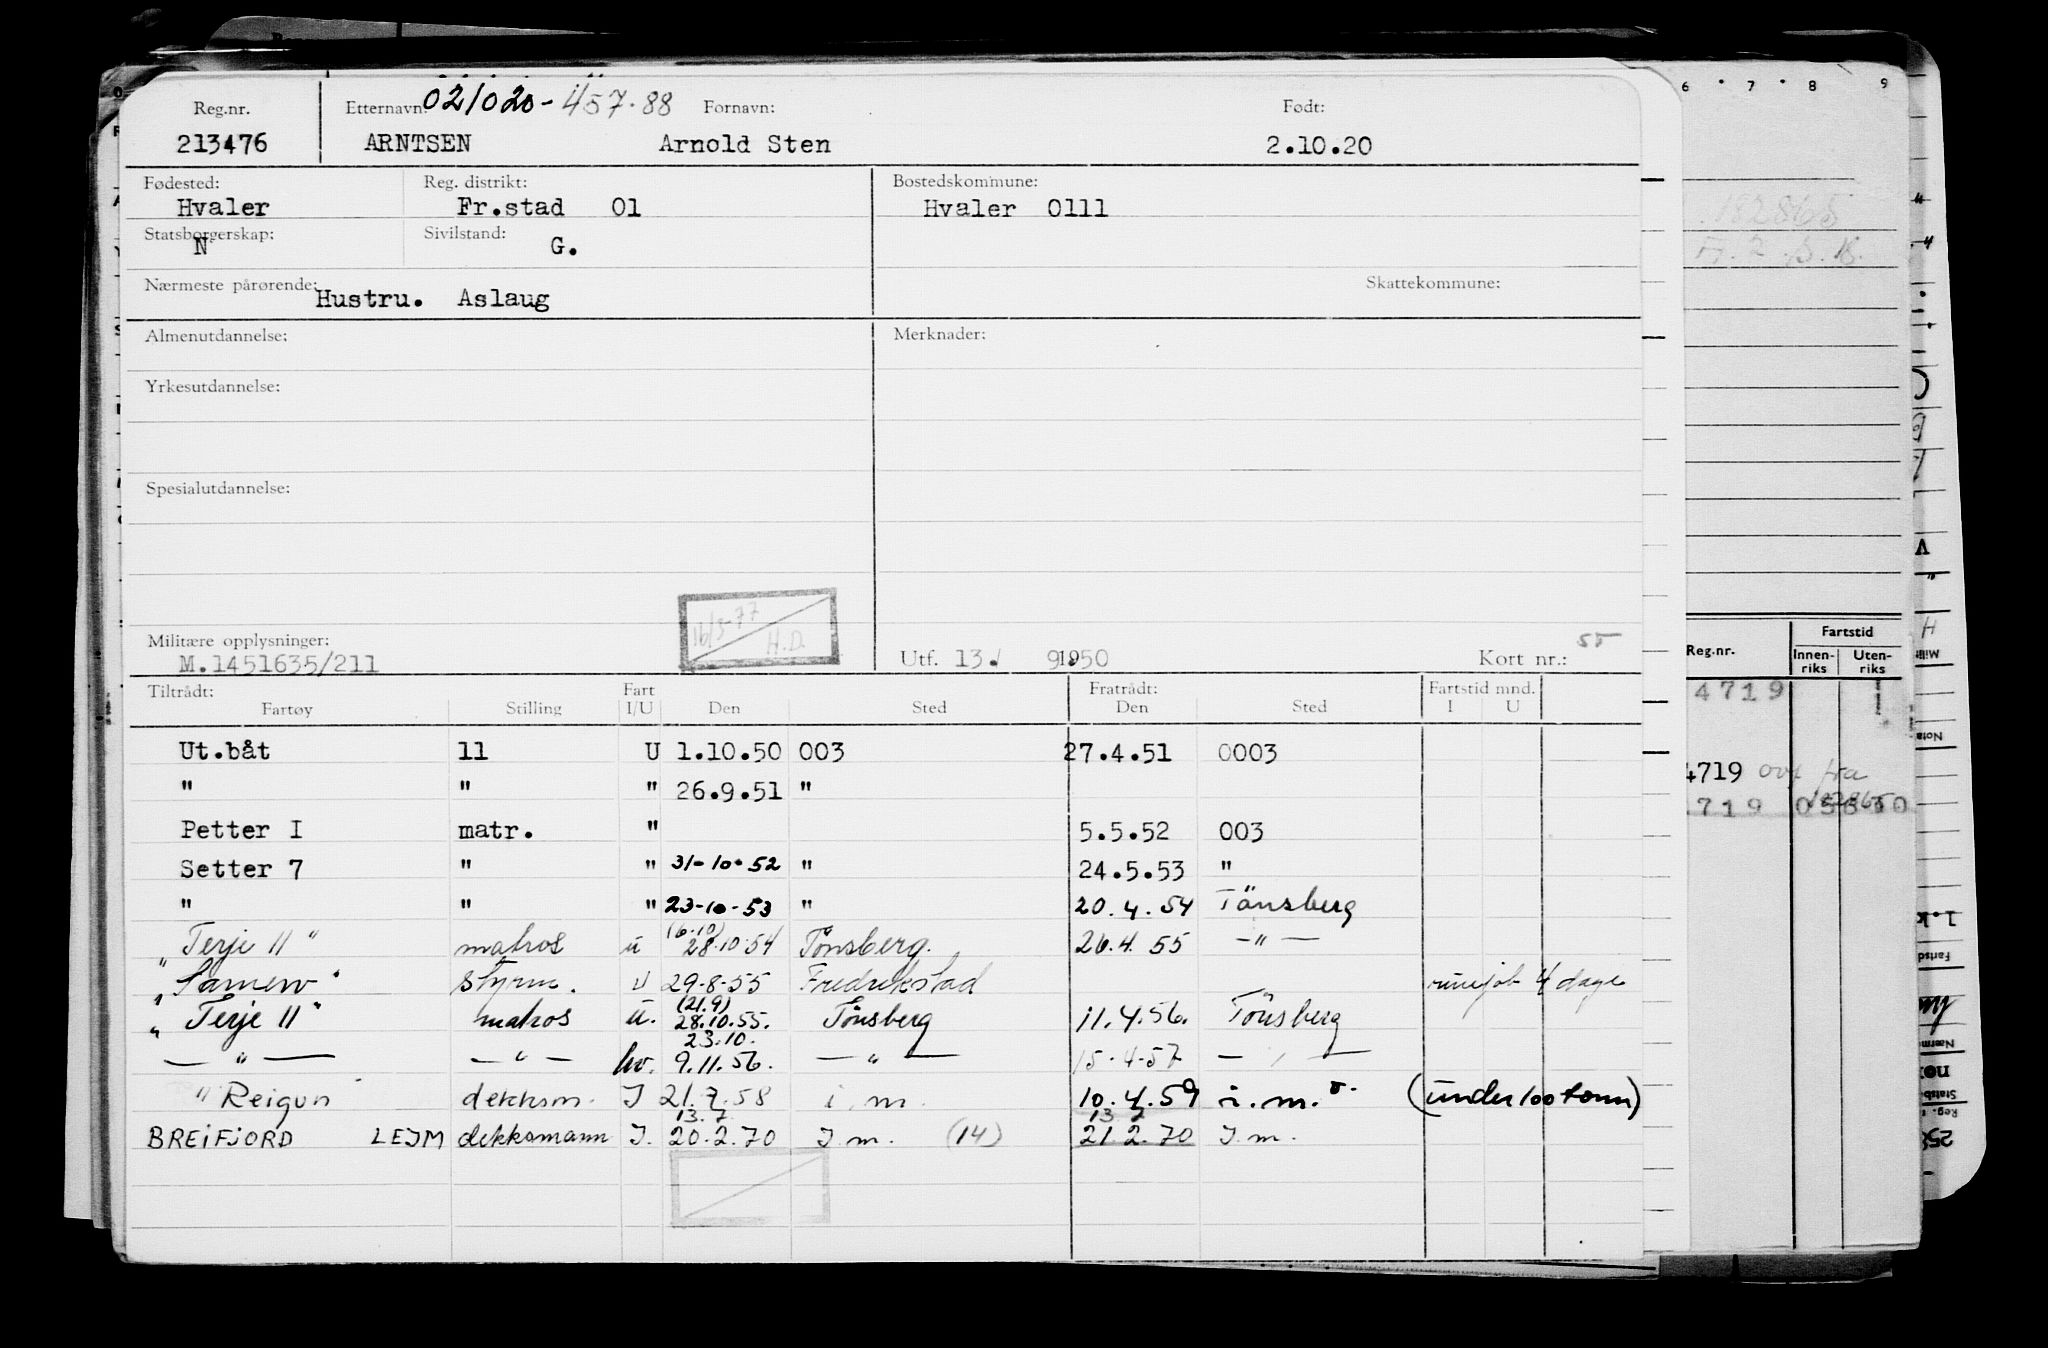 Reg.nr. Etternavn: 021020-45788 Fornavn: Født:
213476 ARNTSEN Arnold Sten 2.10.20
Fødested: Reg. distrikt: Bostedskommune:
Hvaler Fr.stad 01 Hvaler 0111
Statsborgerskap: Sivilstand:
N G.
Nærmeste pårørende: Skattekommune:
Hustru. Aslaug
Almenutdannelse: Merknader:
Yrkesutdannelse:
Spesialutdannelse:
16/3-77 H.D.
Militære opplysninger: 55
M.1451635/211 Utf. 13. 9.1950 Kort nr.:
Tiltrådt: Fart Fratrådt: Fartstid mnd.
Fartøy Stilling I/U Den Sted Den Sted I U
Ut.båt 11 U 1.10.50 003 27.4.51 0003
" " " 26.9.51 "
Petter I matr. " 5.5.52 003
Setter 7 " " 31-10-52 " 24.5.53 "
" " " 23-10-53 " 20.4.54 Tönsberg
"Terje II" matros u (6.10) 28.10.54 Tönsberg. 26.4.55 -"-
styrm. U 29-8-55 Fredrikstad 4 dage
"Terje II" matros u. (21.9) 28.10.55. Tönsberg 11.4.56. Tönsberg
23.10.
-"- -"- hv. 9.11.56. -"- 15-4-57 -"-
"Reigun dekksm. I 21.7.58 i.m. 10.4.59 i.m. (under 100 tonn)
13.7 13 7
BREIFJORD LEJM dekksmann I. 20.2.70 I.m. (14) 21.2.70 I.m.
6 7 8 9
182865
Reg.nr. Fartstid
Innenriks Utenriks
4719
4719 ovf fra
182865
719